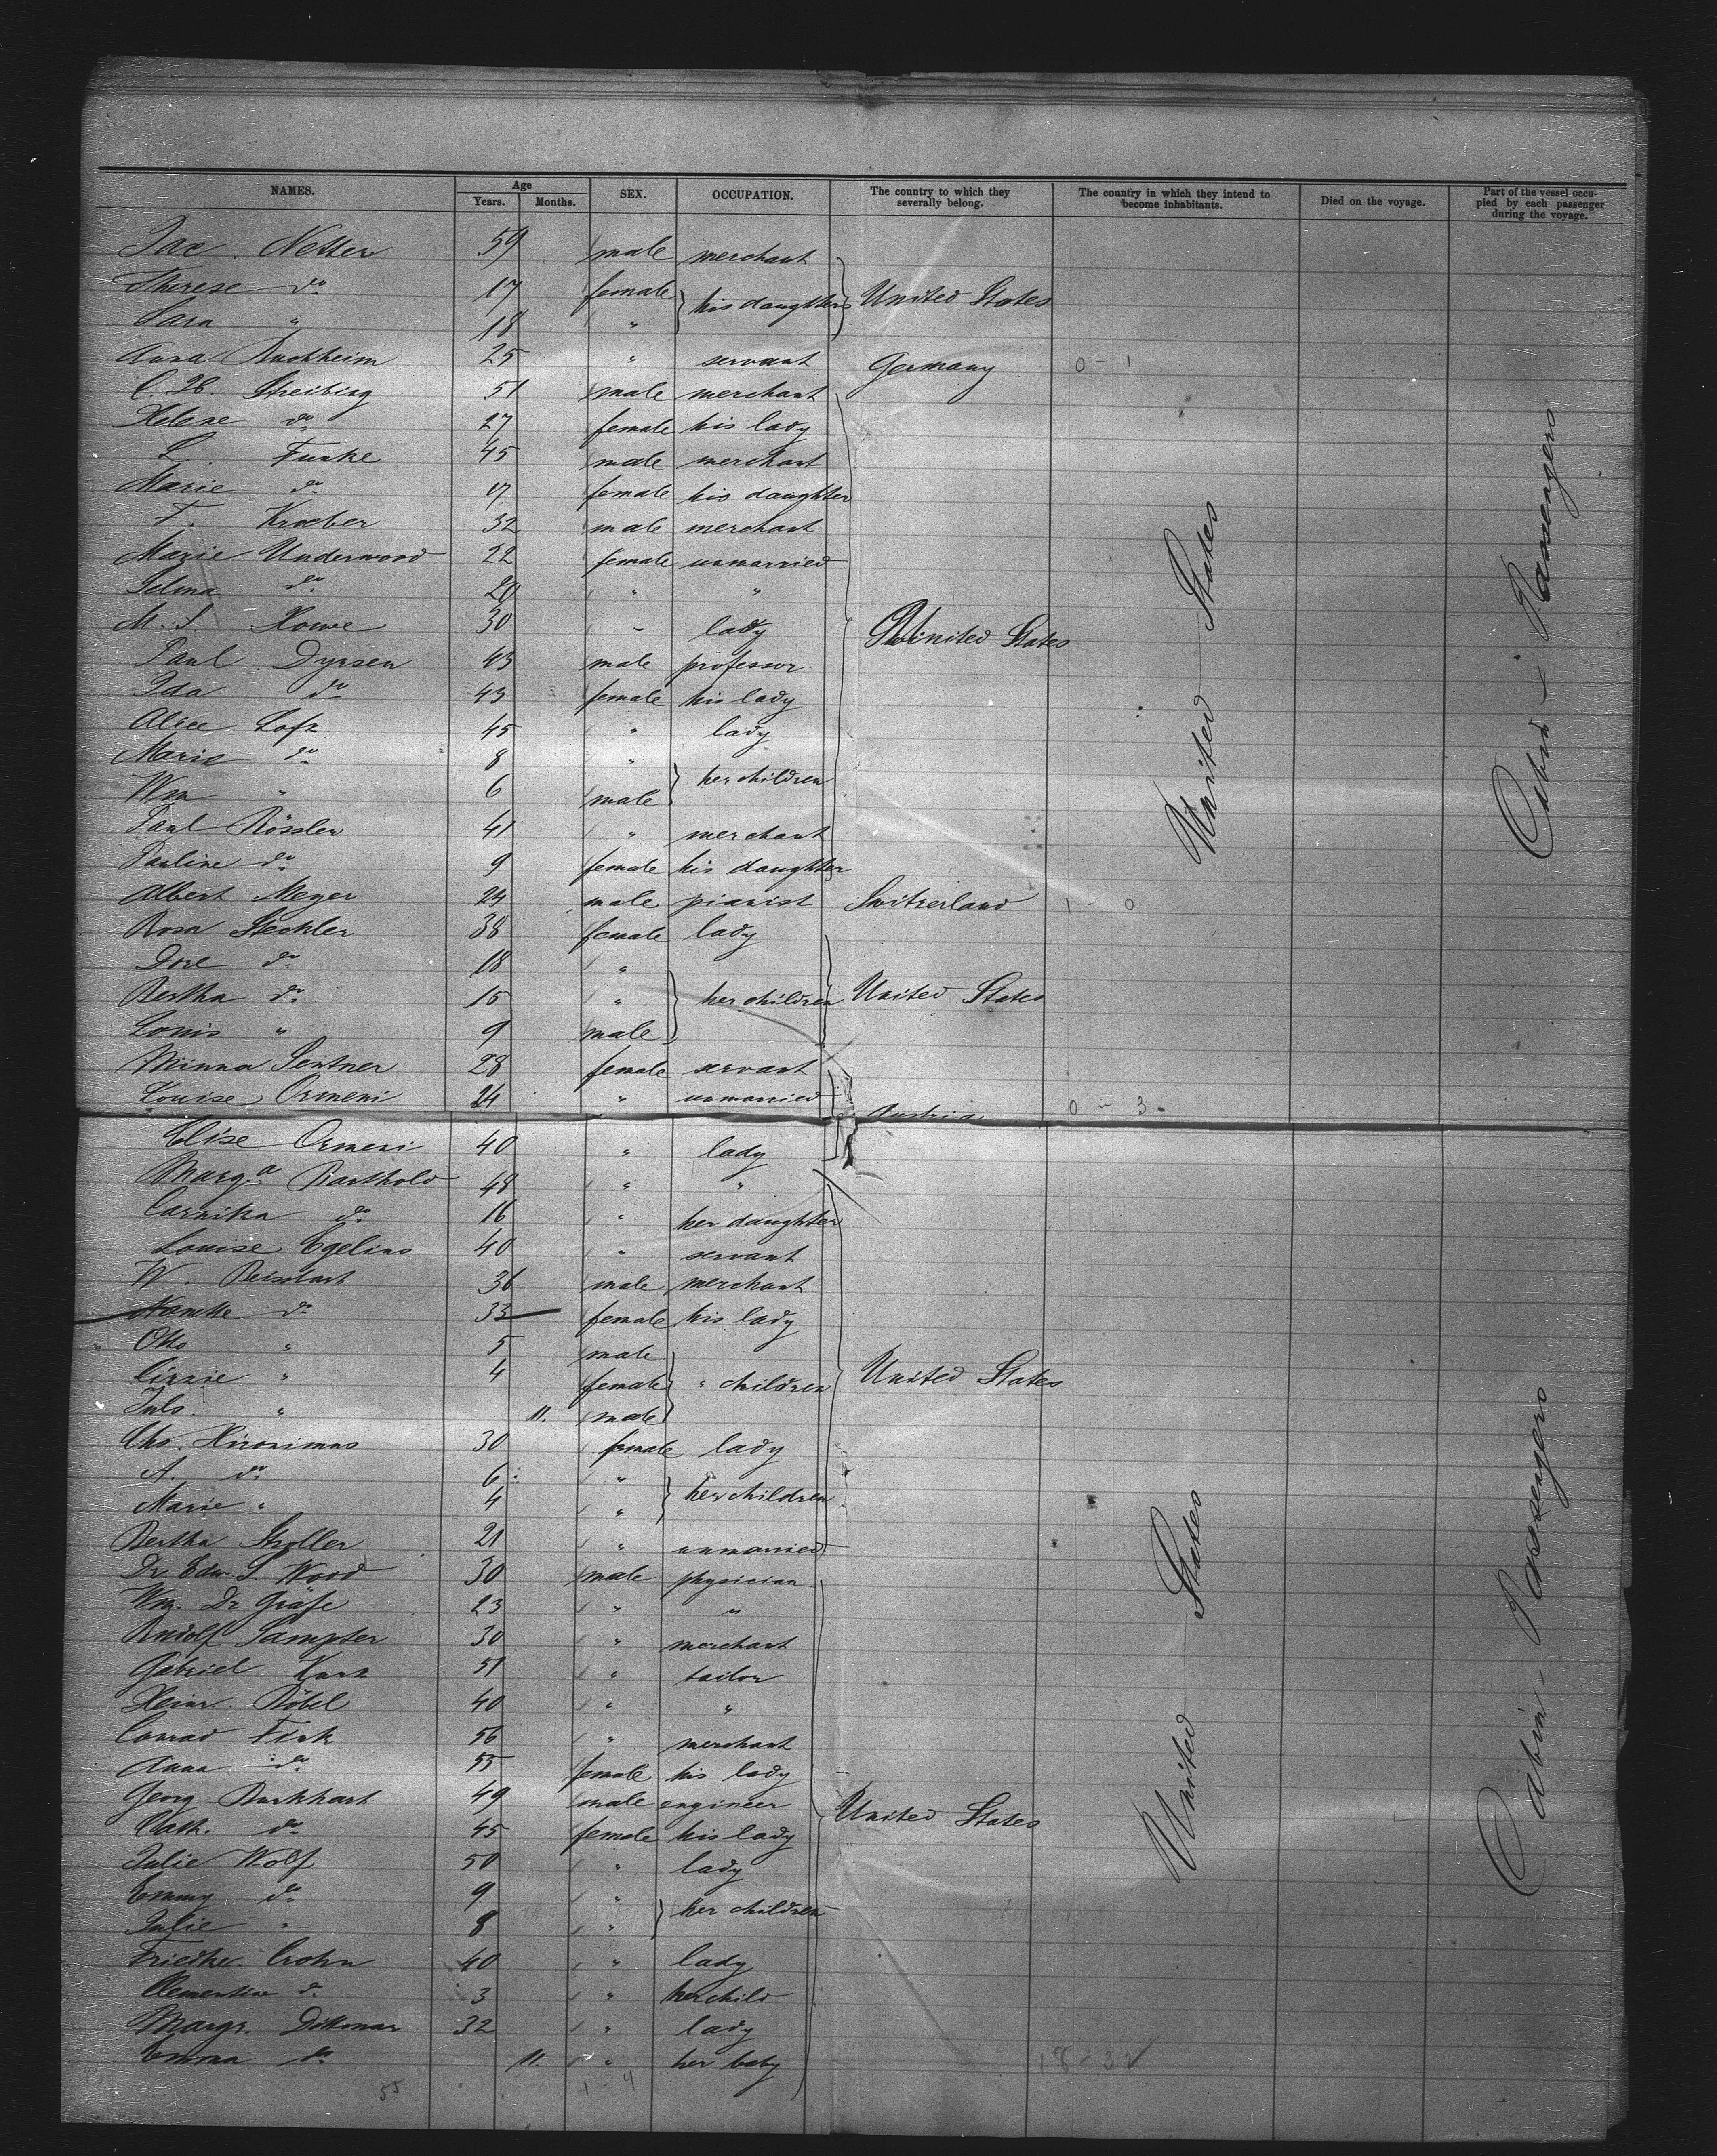 NAMES. Age Years. Months. SEX. OCCUPATION. The country to which they severally belong. The country in which they intend to become inhabitants. Died on the voyage. Part of the vessel occupied by each passenger during the voyage.
Jac. Netter 59 male merchant
Therese do 17 female his daughters United States
Sara " 18 "
Anna Buchheim 25 " servant Germany 0 - 1
C. W. Streibing 51 male merchant
Helene do 27 female his lady
L. Funke 45 male merchant
Marie do 17 female his daughter
F. Kroeber 32 male merchant
Marie Underwood 22 female unmarried
Selma do 20 " "
M. S. Howe 30 " lady United States
Paul Dyrsen 43 male professor
Ida do 43 female his lady
Alice Lofz 45 " lady
Marie do 8 " her children
Wm " 6 male
Paul Rössler 41 " merchant
Pauline do 9 female his daughter
Albert Meyer 24 male pianist Switzerland 1 - 0
Rosa Steckler 38 female lady
Dore do 18 "
Bertha do 15 " her children United States
Louis " 9 male
Minna Sentner 28 female servant
Louise Ormeni 24 " unmarried Austria 0 - 3
Elise Ormeni 40 " lady
Marga Barthold 48 " "
Carnika do 16 " her daughter
Louise Egelius 40 " servant
W. Reinhart 36 male merchant
do 33 female his lady
Otto " 5 male
Lizzie " 4 female " children United States
Juls. " 11. male
Chs. Hironimus 30 female lady
A. do 6 "
Marie " 4 " her children
Bertha Stroller 21 " unmarried
Dr. Edw. S. Wood 30 male physician
Wm. Dr Gräfe 23 " "
Rudolf Sampter 30 " merchant
Gabriel Kurz 51 " tailor
Heinr. Böbel 40 " "
Conrad Fink 56 " merchant
Anna do 55 female his lady
Georg Burkhart 49 male engineer
Cath. do 45 female his lady United States
Julie Wolf 50 " lady
Emmy do 9 " her children
Julie " 8 "
Friedke. Crohn 40 " lady
Clementine do 3 " her child
Margr. Dittmar 32 " lady
Emma do 11. " her baby
55 1 - 4 18 - 32
United States
Cabin - Passengers
United States
Cabin - Passengers